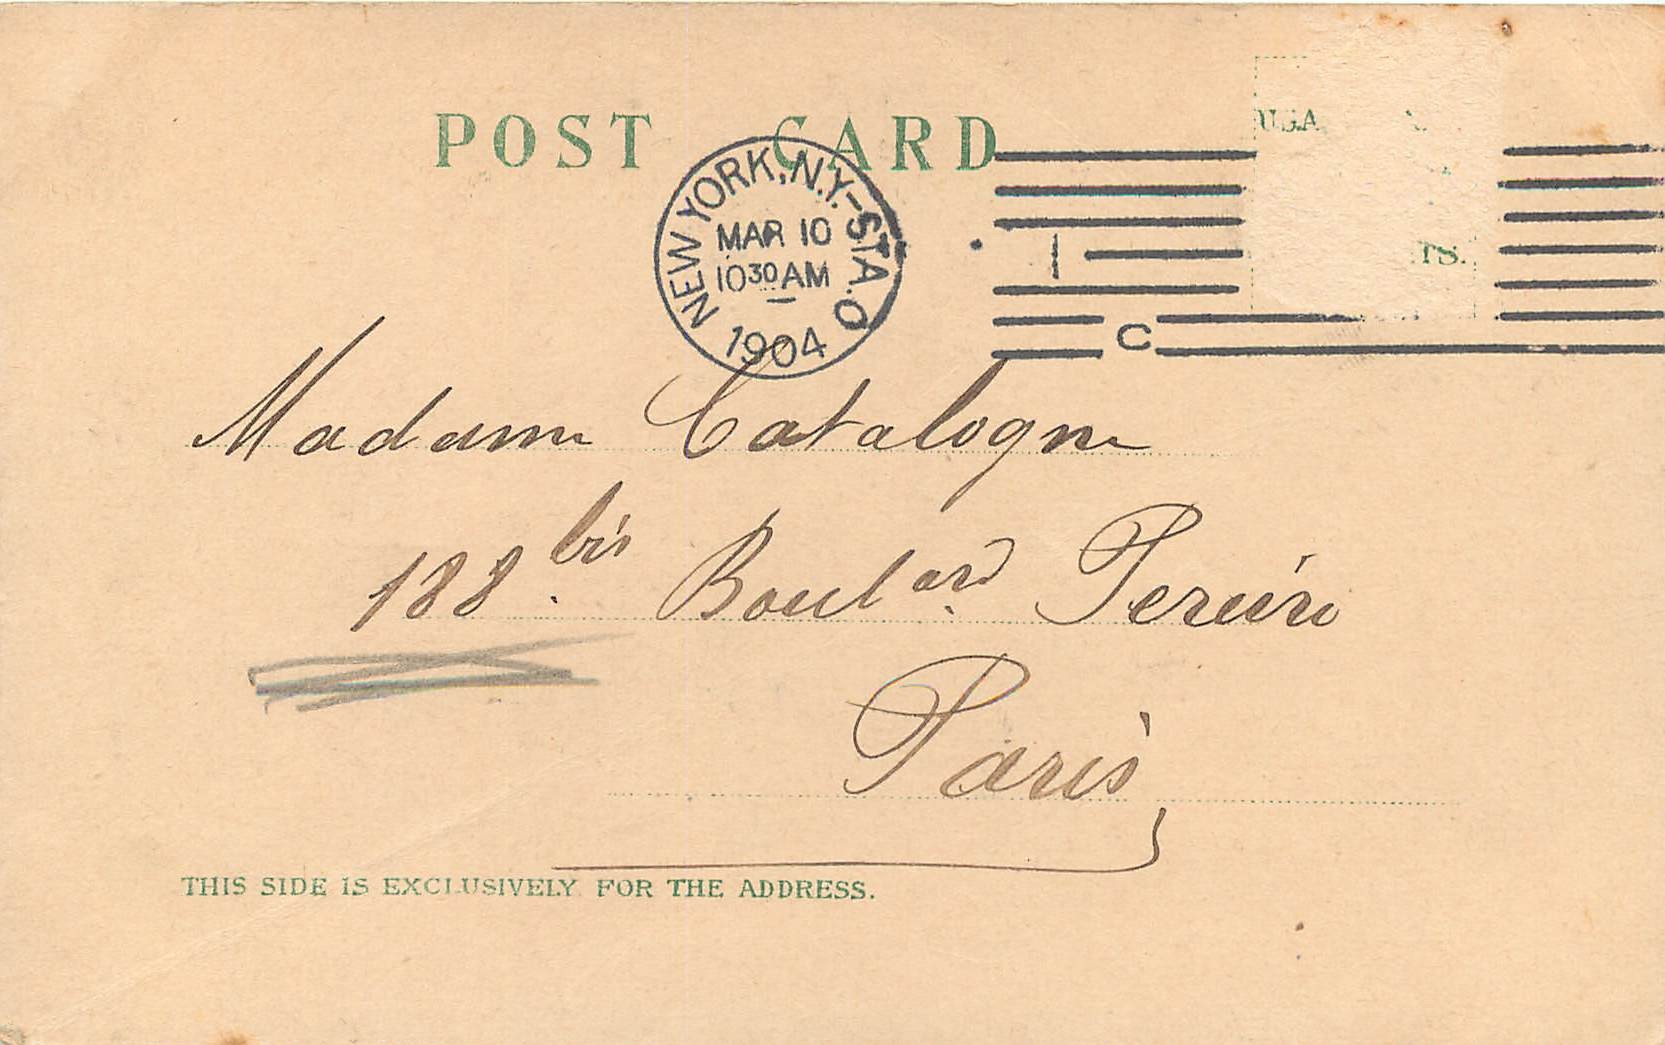 POST CARD
NEW YORK, N.Y.-STA. O
MAR 10
10 30 AM
1904
1
C
TS.
Madame Catalogne
188 bis Boulard Pereire
Paris
THIS SIDE IS EXCLUSIVELY FOR THE ADDRESS.